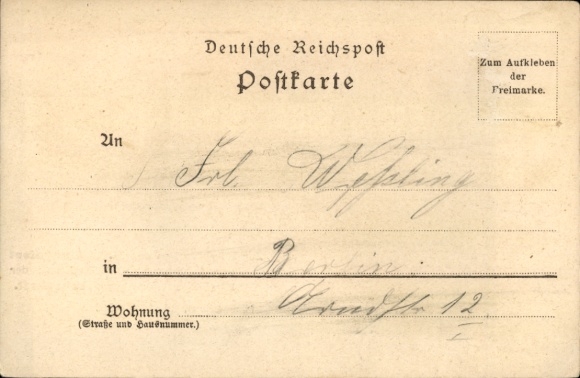 Deutsche Reichspost
Postkarte
Zum Aufkleben
der
Freimarke.
An Frl. Weßling
in Berlin.
Wohnung Arndtstr 12
(Straße und Hausnummer.) I